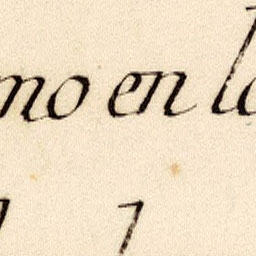 mo en la